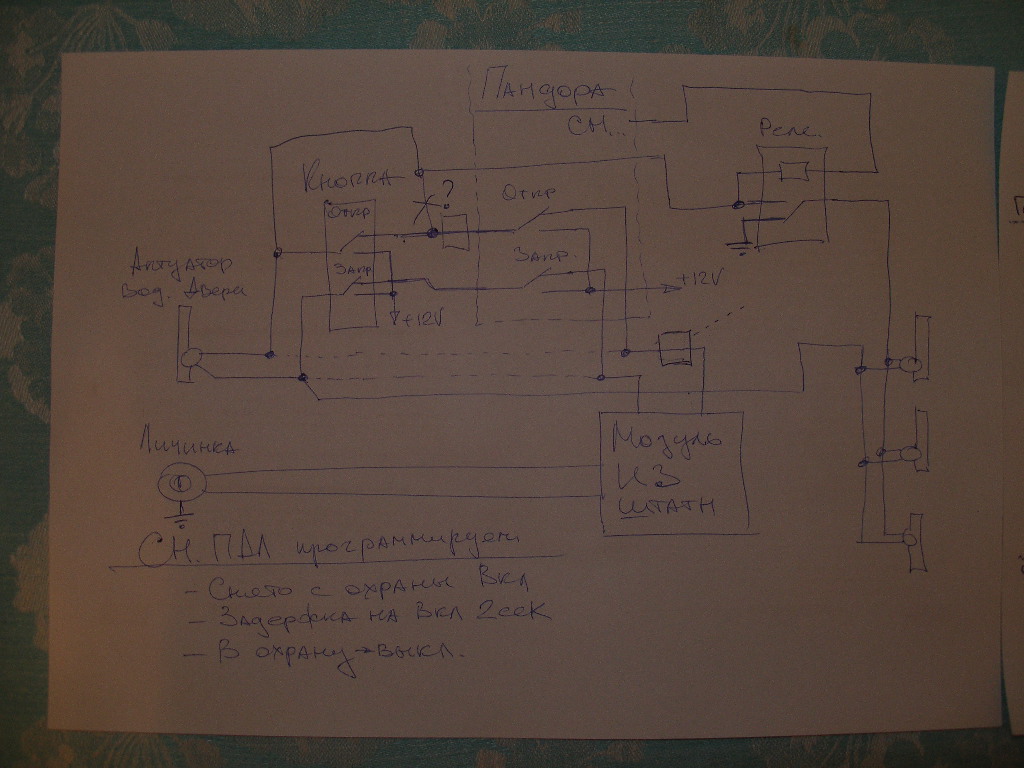 Пандора
СН...
Реле.
Кнопка
?
Откр
Откр
Запр.
Запр.
+12V
+12V
Актуатор
вод. двери
Личинка
Модуль
ЦЗ
штатн
СН. ПДЛ программируем
- Снято с охраны Вкл
- Задержка на Вкл 2сек
- В охрану → выкл.